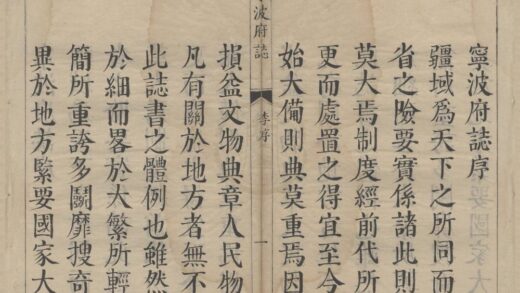 寧波府誌序
疆域為天下之所同而
省之險要實係諸此則
莫大焉制度經前代所
更而處置之得宜至今
始大備則典莫重焉因
波府誌
李序
一
損益文物典章人民物
凡有關於地方者無不
此誌書之體例也雖然
於細而畧於大繁所輕
簡所重誇多鬬靡搜奇
異於地方緊要國家大